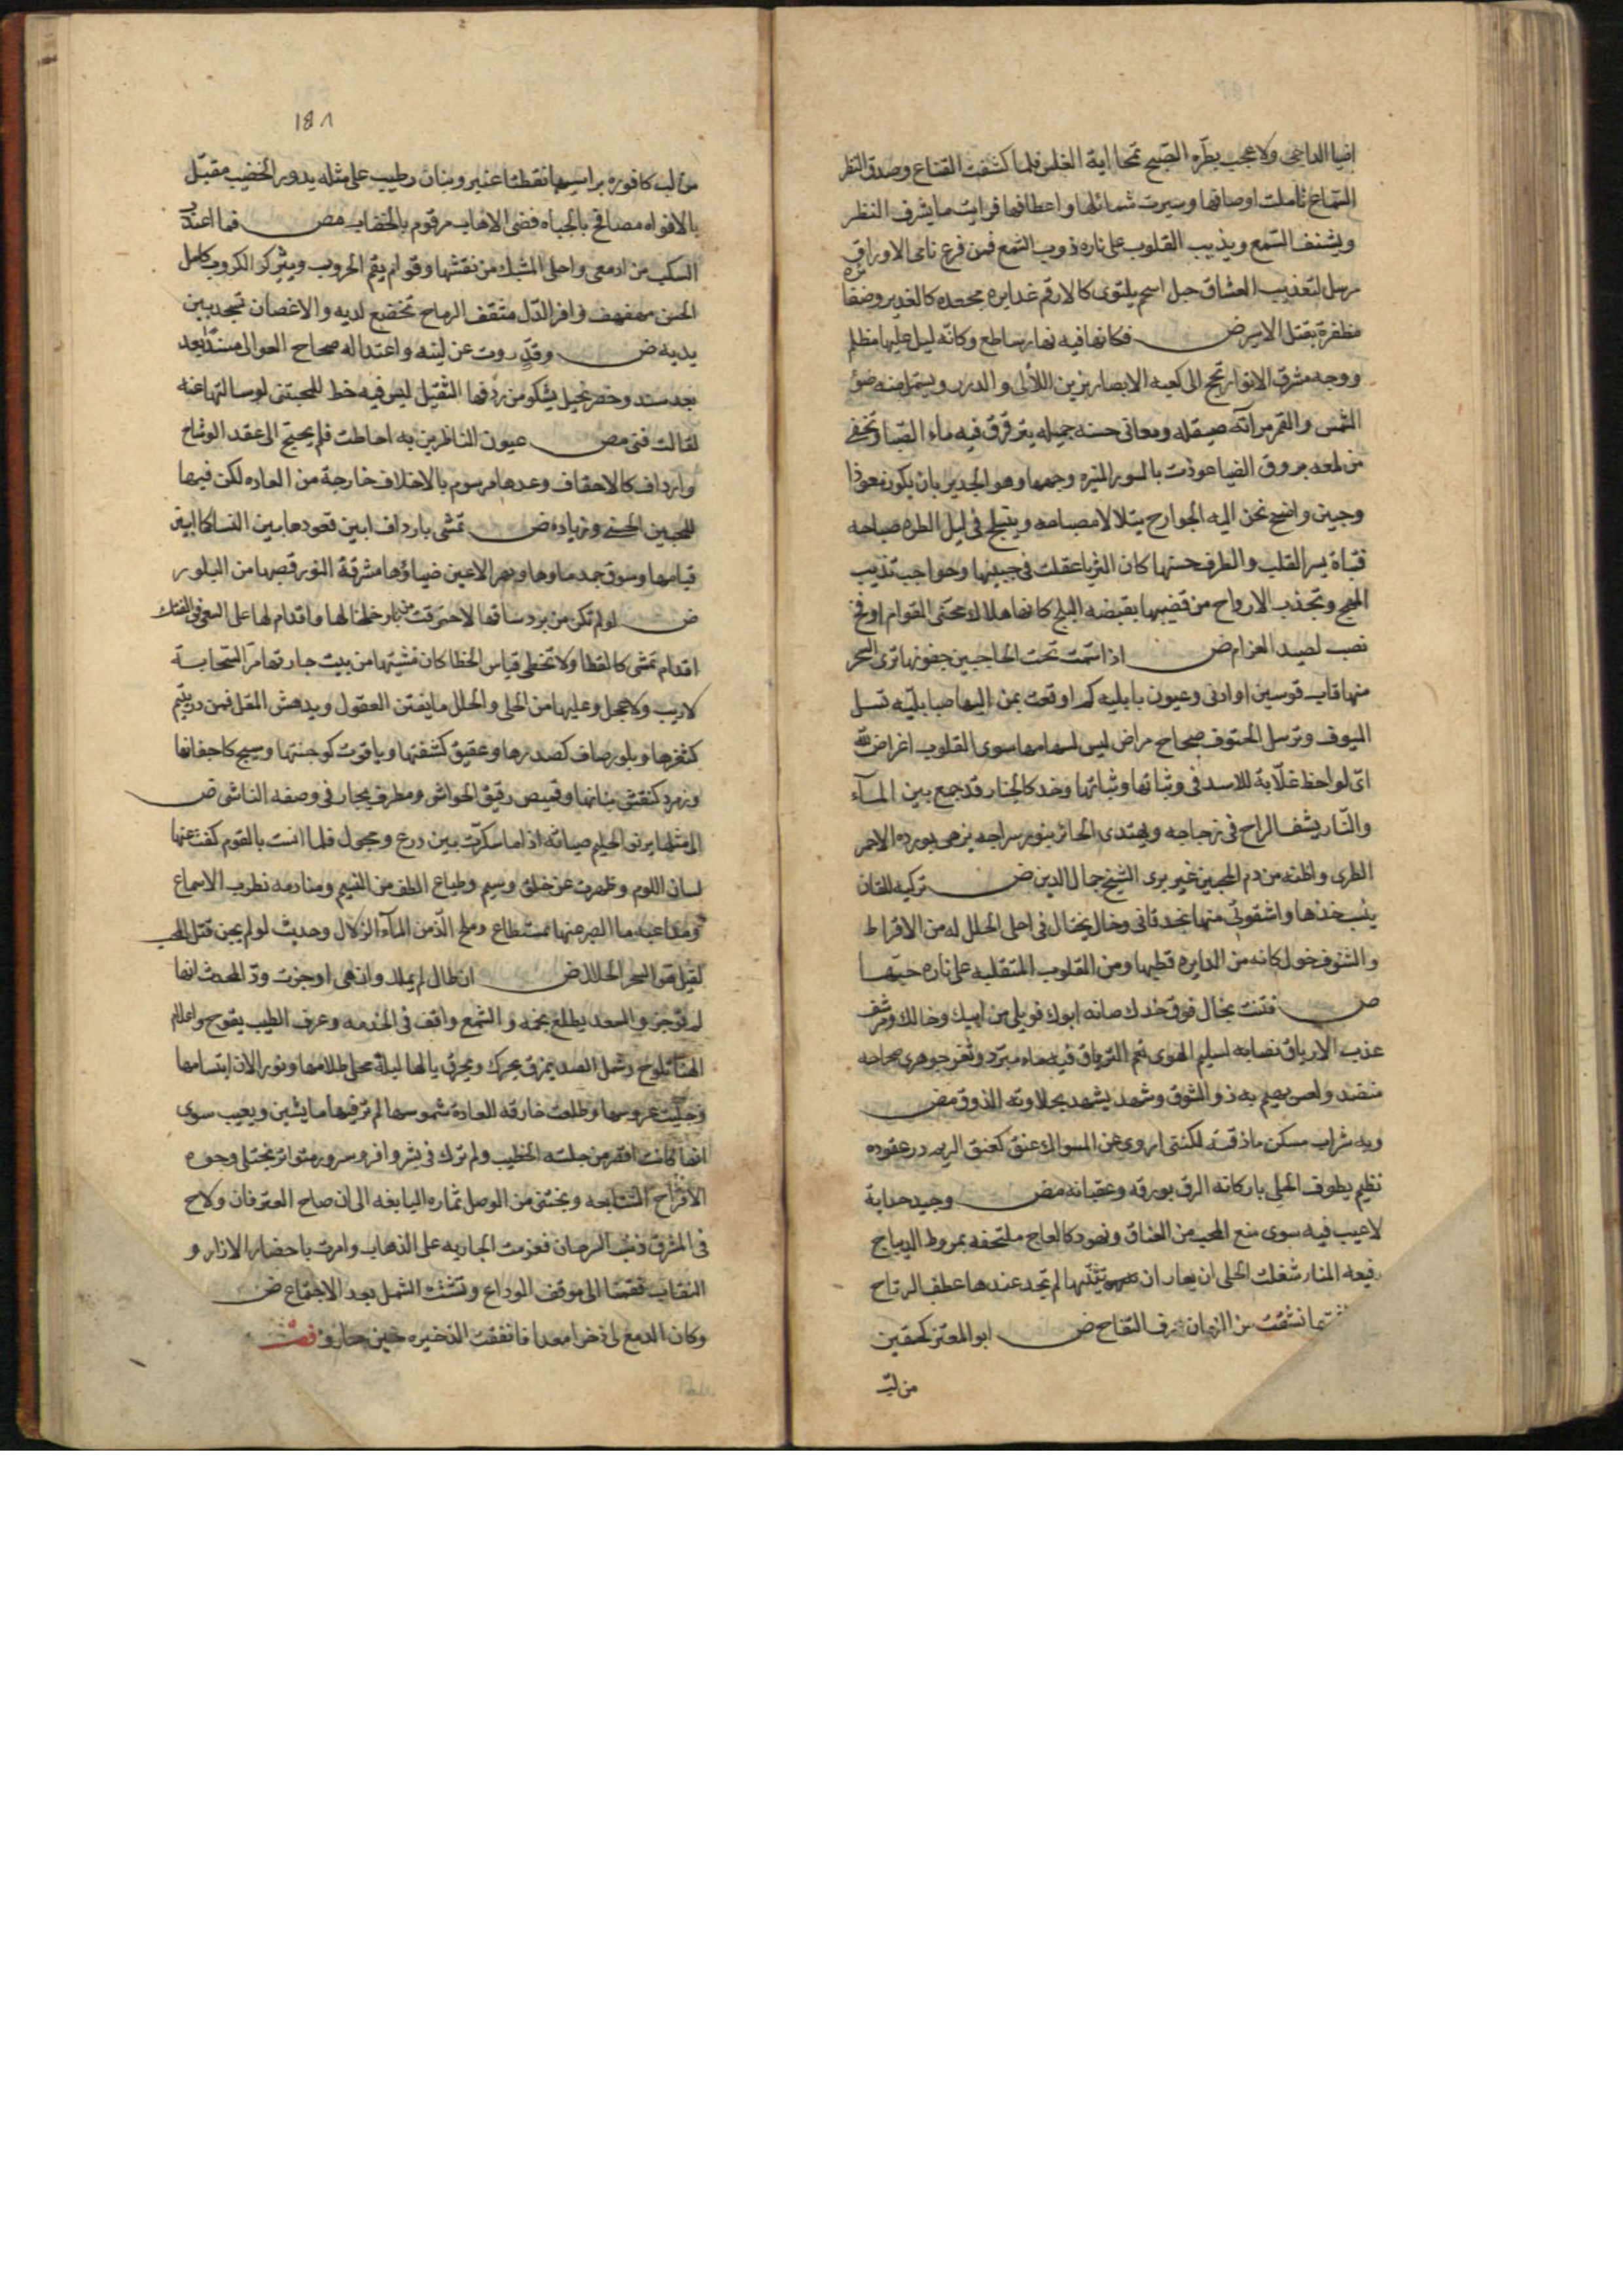 اضيا الداجى ولا عجب بطرّه الصبح تمحا اية الغلس فلما كشفت القناع وصدق النظر
السماع تاملت اوصافها وسيرت شمائلها واعطافها فرايت ما يشرف النظر
ويشنف السمع ويذيب القلوب على ناره ذوب الشمع فمن فرع نامى الاوراق
مرسل لتعذيب العشاق جبل اسحم يلتوى كالارقم غدايره مجعده كالغدير وضفائره
مظفرة بقتل الاسير ض فكانها فيه نهار ساطع وكانّه ليل عليها مظلم
ووجه مشرق الانوار تحج الى كعبه الابصار يزين اللآلى والدرر ويستمد منه ضوء
الشمس والقمر مرآته صيقله ومعانى حسنه جميله يترقرق فيه ماء الصبا وتخفى
من لمعه بروق الضيا عوذت بالسور المنيره وجهها وهو الجدير بان يكون معوذا
وجبين واضح تحن اليه الجوارح يتلالا مصباحه ويتبلج فى ليل الطره صباحه
فتاة يسر القلب والطرف حسنها كان الثريا علقت فى جبينها وحواجب تذيب
المهج وتجذب الارواح من قضيبها بقبضه البلج كانها هلالان محنى القوام او فخ
نصب لصيد الغزام ض اذا شمت تحت الحاجبين جفونها ترى السحر
منها قاب قوسين او ادنى وعيون بابليه كم اوقعت بمن اليها صبا بليّه تسل
السيوف وترسل الحتوف صحاح مراض ليس لسهامها سوى القلوب اغراض لله
اىّ لواحظ غلّابة للاسد فى وثباتها وثباتها وخد كالجلنار قد جمع بين المآء
والنّار يشف الراح فى زجاجه ويهتدى الحائر بنور سراجه يزهى بورده الاحمر
الطرى واظنه من دم المحبين غير برى الشيخ جمال الدين ض تركيه للقان
ينسب خدها واشقوتى منها بخد قانى وخال يختال فى احلى الحلل له من الاقراط
والشنوف خول كانه من الدايره قطبها ومن القلوب المتقلبه على ناره حبّها
ض فتنت بخال فوق خدك صانه ابوك فويلى من ابيك وخالك ومرشف
عذب الارياق نصابه لسليم الهوى نعم الترياق فيه ماء مبرّد وثغر جوهرى صحاحه
منضد ولعس يهيم به ذو الشوق وشهد يشهد بحلاوته الذوق مض
وبه شراب مسكر ما ذقته لكننى اروى عن المسواك عنق كعنق الريم در عقوده
نظيم يطوف الحلى باركانه الرق بورقه وعقيانه مض وجيد جداية
لا عيب فيه سوى منع المحب من العناق ونهود كالعاج ملتحفه بمروط الديباج
رفيعه المنار شغلت الحلى ان يعار ان تثنّيها لم تجد عندها عطف الرتاح
شمتها نشقت من الرمان عرف التفاح ض ابو المعتز كحقين
من لبّ
١٨١
من لب كافوره براسيهما نقطتا عنبر وبنان رطيب على مثله يدور الخضيب مقبّل
بالافواه مصافح بالجباه فضى الاهاب مرقوم بالخضاب مض فما اعذب
السكب من ادمعى واحلى المشبك من نقشها وقوام يقم الحروب ويثير كر الكروب كامل
الحسن مهفهف وافر الدّل مثقف الرماح تخضع لديه والاغصان تسجد بين
يديه ض وقدّ روت عن لينه واعتداله صحاح العوالى مسنداً بعد
بعد مسند وخصر نحيل يشكو من ردفها الثقيل ليس فيه خط للمجتنى لو سالتها عنه
لقالت فنى مض عيون الناظرين به احاطت فلم يحتج الى عقد الوشاح
وارداف كالاحقاف وعدها مرسوم بالاخلاف خارجة من العاده لكن فيها
للمحبين الحسنى وزياده ض تمشى بارداف ابين قعودها بين النسا كما ابين
قيامها وسوق جمد ماوها وبهر الاعين ضياؤها مشرقة النور قصبها من البلور
ض لو لم تكن من برد ساقها لاحترقت من نار خلخالها واقدام لها على السعى فى الفتك
اقدام تمشى كالقطا ولا تخطى قياس الخطا كان مشيتها من بيت جارتها مرّ السحابة
لا ريب ولا عجل وعليها من الحلى والحلل ما يفتن العقول ويدهش المقل فمن در يتيم
كثغرها وبلور صاف كصدرها وعقيق كشفتها وياقوت كوجنتها وسبج كاجفانها
وزمرد كنقش بنانها وقميص رقيق الحواشى ومطرف يحار فى وصفه الناشى ض
الى مثلها يرنو الحليم صيانة اذا ما اسبكرّت بين درع ومجول فلما انست بالقوم كفت عنها
لسان اللوم وظهرت عن خلق وسيم وطباع الطف من النسيم ومنادمه تطرب الاسماع
ومداعبه ما الصبر عنها بمستطاع وملح الذّ من المآء الزلال وحديث لو لم يجن قتل المحب
لقيل هو السحر الحلال ض ان طال لم يملل وان هى اوجزت ودّ المحدث انها
لم توجز والسعد يطلع نجمه والشمع واقف فى الخدمه وعرف الطيب يفوح واعلام
الهنا تلوح وشمل الصد يمزق بحرك ويحرق يا لها ليلة تجلى ظلامها ونور الان ابتسامها
وجليت عروسها وطلعت خارقه للعادة شموسها لم تر فيها ما يشين ويعيب سوى
انها كانت اقصر من جلسه الخطيب ولم نزل فى بشر وافر وسرور متواتر نجتلى وجوه
الافراح المتتابعه ونجتنى من الوصل ثماره اليانعه الى ان صاح العترفان ولاح
فى المشرق ذنب السرحان فعزمت الجاريه على الذهاب وامرت باحضار الازار و
النقاب فقمنا الى موقف الوداع وتشتت الشمل بعد الاجتماع ض
وكان الدمع لى ذخرا معدا فانفقت الذخيره حين سارو